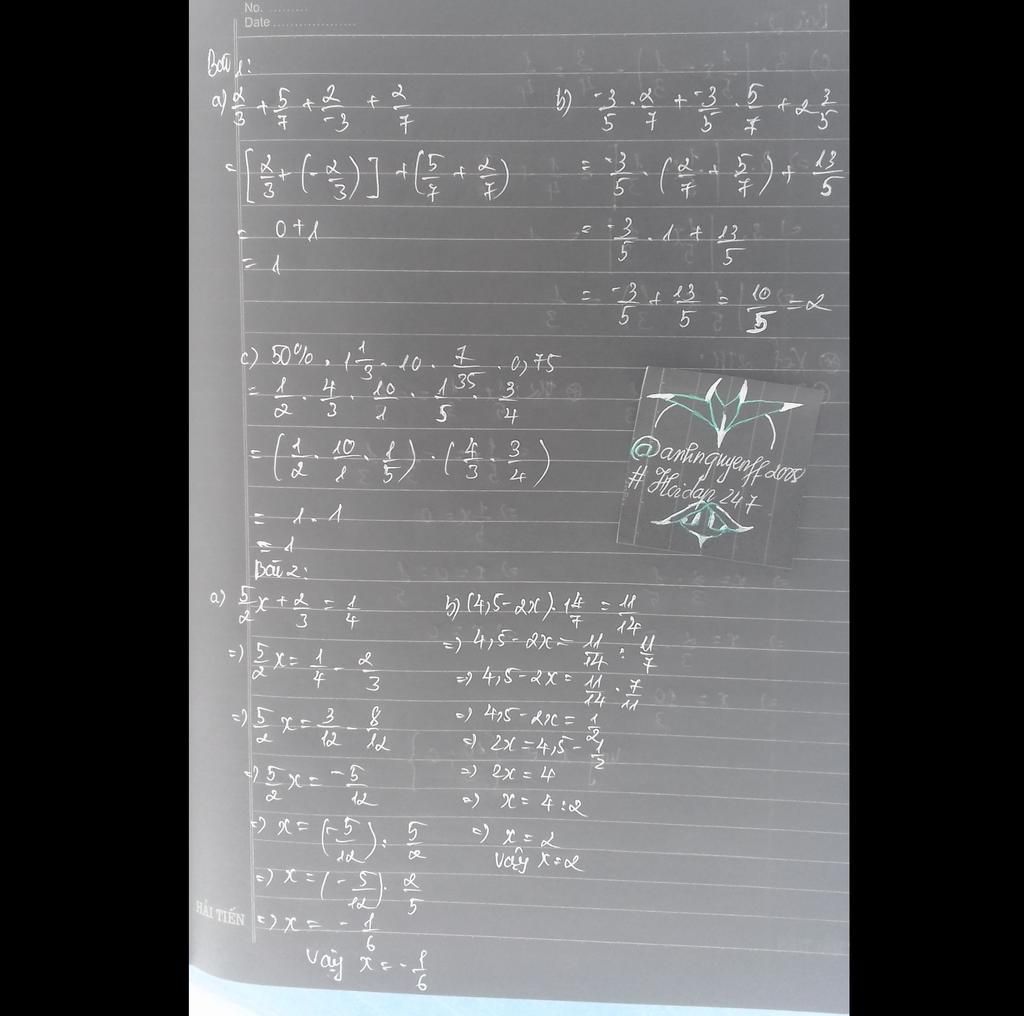 No. .........
Date ..................
Bài 1:
a) 2/3 + 5/7 + 2/-3 + 2/7
= [2/3 + (-2/3)] + (5/7 + 2/7)
= 0 + 1
= 1
b) -3/5 . 2/7 + -3/5 . 5/7 + 2 3/5
= -3/5 . (2/7 + 5/7) + 13/5
= -3/5 . 1 + 13/5
= -3/5 + 13/5 = 10/5 = 2
c) 50% . 1 1/3 . 10 . 7/35 . 0,75
= 1/2 . 4/3 . 10/1 . 1/5 . 3/4
= (1/2 . 10/1 . 1/5) . (4/3 . 3/4)
= 1 . 1
= 1
@anhnguyenff2008
# Hoidap 247
Bài 2:
a) 5/2 x + 2/3 = 1/4
=> 5/2 x = 1/4 - 2/3
=> 5/2 x = 3/12 - 8/12
=> 5/2 x = -5/12
=> x = (-5/12) : 5/2
=> x = (-5/12) . 2/5
=> x = -1/6
Vậy x = -1/6
b) (4,5 - 2x) . 1 4/7 = 11/14
=> 4,5 - 2x = 11/14 : 11/7
=> 4,5 - 2x = 11/14 . 7/11
=> 4,5 - 2x = 1/2
=> 2x = 4,5 - 1/2
=> 2x = 4
=> x = 4 : 2
=> x = 2
Vậy x = 2
HẢI TIẾN